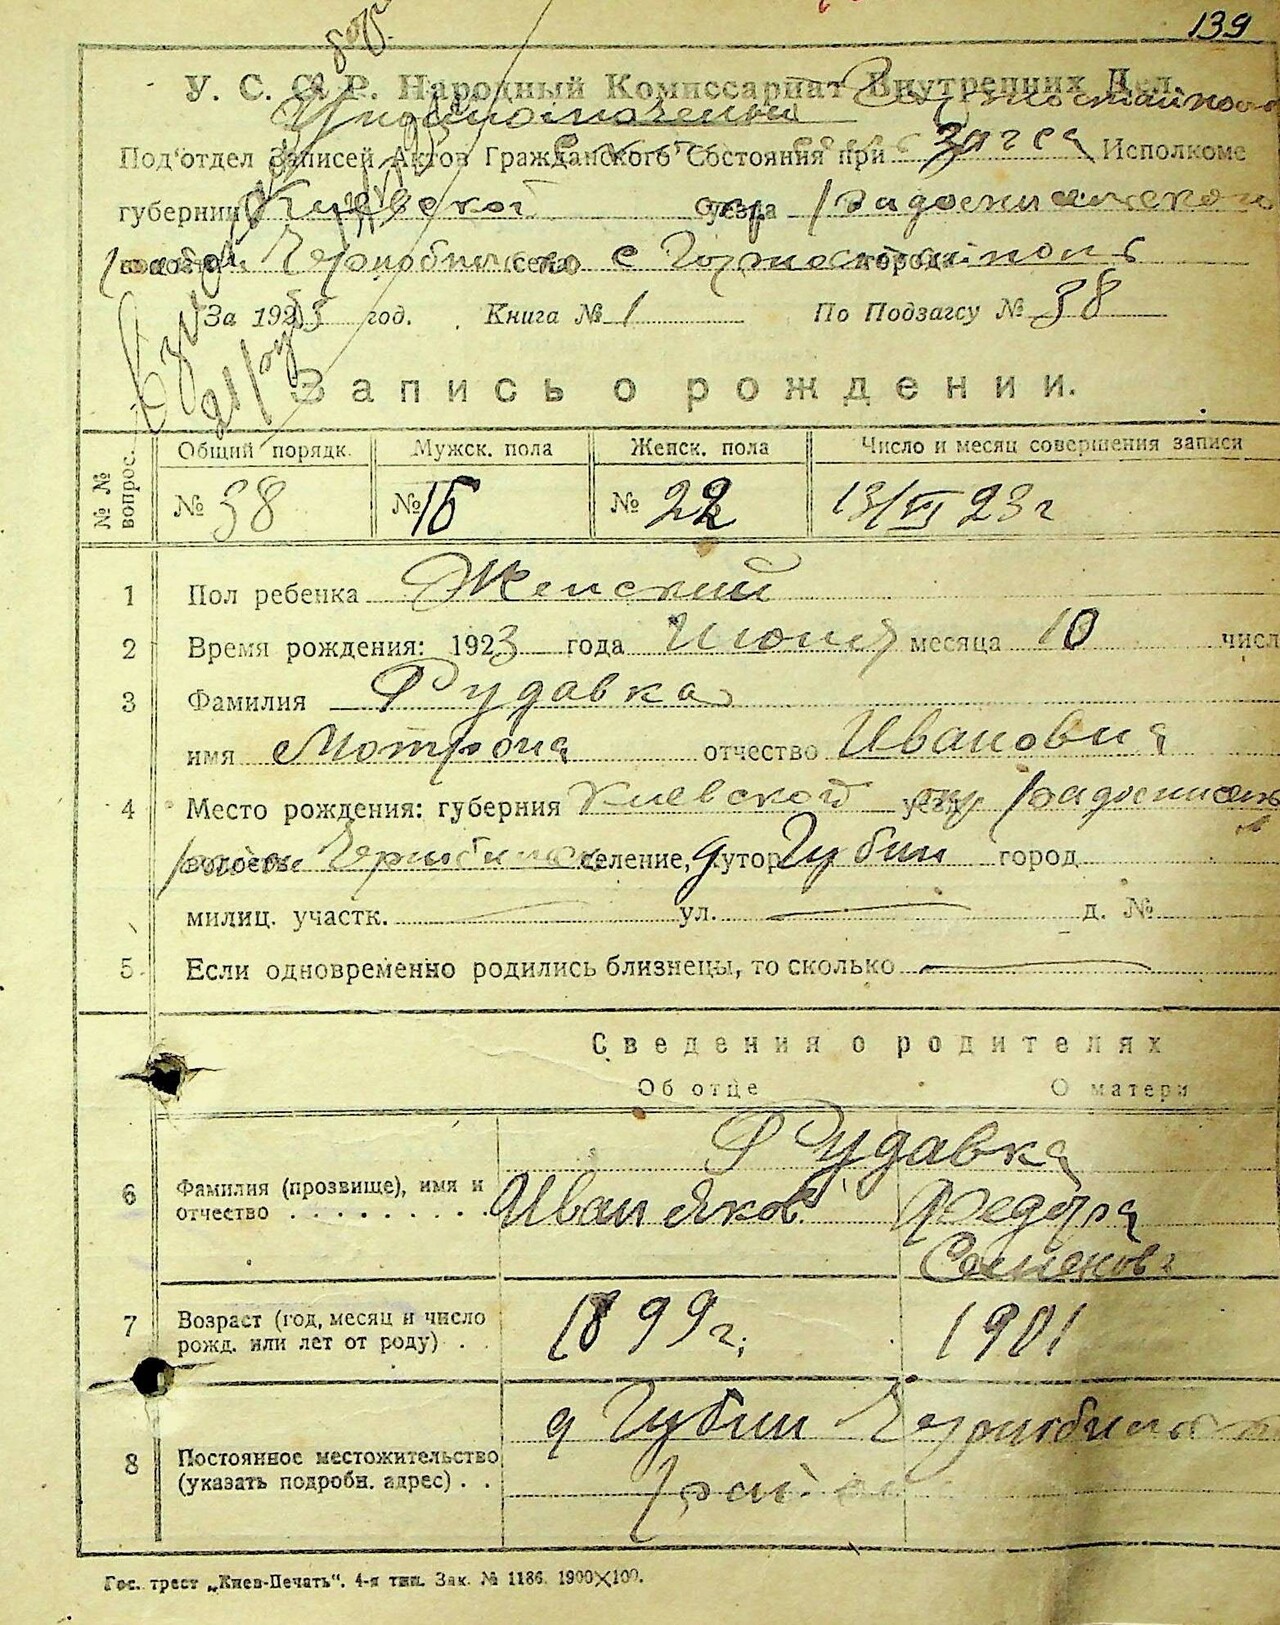 139
У. С. С. Р. Народный Комиссариат Внутренних Дел.
Под'отдел Записей Актов Гражданского Состояния при Загса Исполкоме
губернии Киевской уезда
села с города
За 1923 год. Книга № 1 По Подзагсу № 38
Запись о рождении.
№ № вопрос. Общий порядк. Мужск. пола Женск. пола Число и месяц совершения записи
№ 38 № 16 № 22 13/VI 23 г
1 Пол ребенка Женский
2 Время рождения: 1923 года Июня месяца 10 числ
3 Фамилия Рудавка
имя Мотрона отчество Ивановна
4 Место рождения: губерния Киевской окр
волость селение, хутор д Губин город
милиц. участк. — ул. — д. №
5 Если одновременно родились близнецы, то сколько —
Сведения о родителях
Об отце О матери
Рудавка
6 Фамилия (прозвище), имя и отчество . . . . . . . . . Иван Яков. Федора
Семенова
7 Возраст (год, месяц и число рожд. или лет от роду) . . 1899 г. 1901
д Губин
8 Постоянное местожительство (указать подробн. адрес) . .
Гос. трест „Киев-Печать“. 4-я тип. Зак. № 1186. 1900×100.